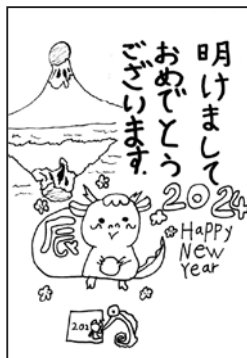 明けまして
おめでとう
ございます.
2024
Happy
New
Year
辰
202